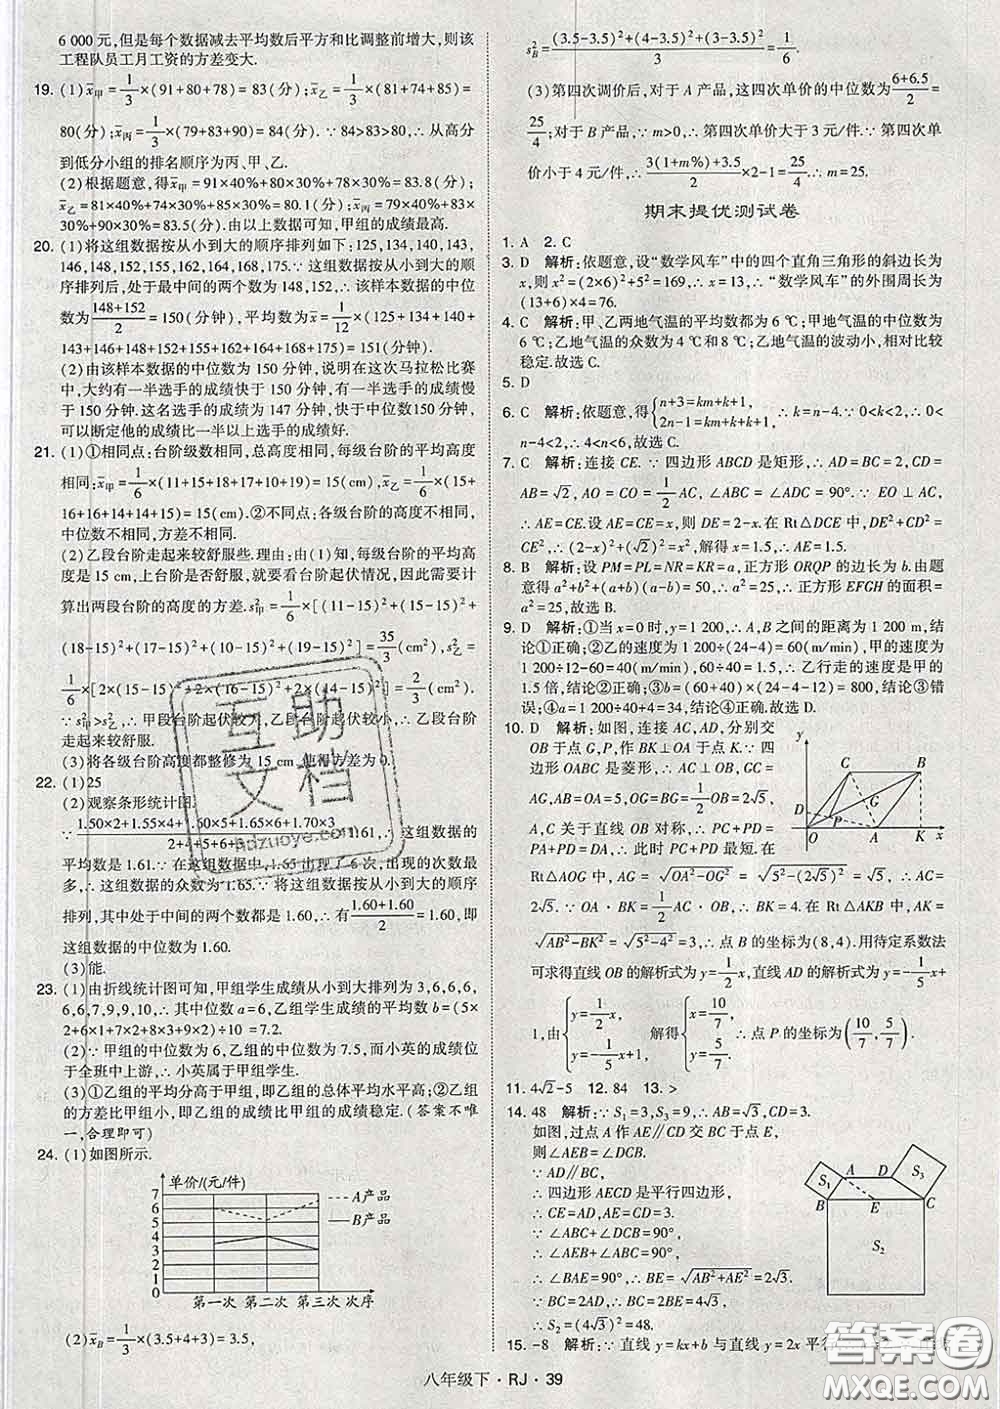 6 000 元,但是每个数据减去平均数后平方和比调整前增大,则该
工程队员工月工资的方差变大.
19. (1) x̄甲=1/3×(91+80+78)=83(分),x̄乙=1/3×(81+74+85)=
80(分),x̄丙=1/3×(79+83+90)=84(分).∵ 84>83>80,∴ 从高分
到低分小组的排名顺序为丙、甲、乙.
(2)根据题意,得x̄甲=91×40%+80×30%+78×30%=83.8(分),
x̄乙=81×40%+74×30%+85×30%=80.1(分),x̄丙=79×40%+83×
30%+90×30%=83.5(分).由以上数据可知,甲组的成绩最高.
20. (1)将这组数据按从小到大的顺序排列如下:125,134,140,143,
146,148,152,155,162,168,175.∵ 这组数据按从小到大的顺
序排列后,处于最中间的两个数据为 148,152,∴ 该样本数据的中位
数为(148+152)/2=150(分钟),平均数为x̄=1/12×(125+134+140+
143+145+146+148+152+155+162+168+175)=151(分钟).
(2)由该样本数据的中位数为 150 分钟,说明在这次马拉松比赛
中,大约有一半选手的成绩快于 150 分钟,有一半选手的成绩慢
于 150 分钟.这名选手的成绩为 147 分钟,快于中位数150分钟,
可以断定他的成绩比一半以上选手的成绩好.
21. (1)①相同点:台阶级数相同,总高度相同,每级台阶的平均高度
相同:x̄甲=1/6×(11+15+18+17+10+19)=15(cm),x̄乙=1/6×(15+
16+16+14+14+15)=15(cm).②不同点:各级台阶的高度不相同,
中位数不相同,方差不相同.
(2)乙段台阶走起来较舒服些.理由:由(1)知,每级台阶的平均高
度是 15 cm,上台阶是否舒服,就要看台阶起伏情况,因此需要计
算出两段台阶的高度的方差.s²甲=1/6×[(11-15)²+(15-15)²+
(18-15)²+(17-15)²+(10-15)²+(19-15)²]=35/3(cm²),s²乙=
1/6×[2×(15-15)²+2×(16-15)²+2×(14-15)²]=2/3(cm²).
∵ s²甲>s²乙,∴ 甲段台阶起伏较大,乙段台阶起伏较小,∴ 乙段台
阶走起来较舒服.
(3)将各级台阶高度都整修为 15 cm,使得方差为 0.
22. (1)25
(2)观察条形统计图.
∵ (1.50×2+1.55×4+1.60×5+1.65×6+1.70×3)/(2+4+5+6+3)=1.61,∴ 这组数据的
平均数是 1.61.∵ 在这组数据中,1.65 出现了 6 次,出现的次数最
多,∴ 这组数据的众数为1.65.∵ 将这组数据按从小到大的顺序
排列,其中处于中间的两个数都是 1.60,∴ 有(1.60+1.60)/2=1.60,即
这组数据的中位数为 1.60.
(3)能.
23. (1)由折线统计图可知,甲组学生成绩从小到大排列为 3,6,6,6,
6,6,7,9,9,10,∴ 其中位数 a=6,乙组学生成绩的平均数 b=(5×
2+6×1+7×2+8×3+9×2)÷10 =7.2.
(2)∵ 甲组的中位数为 6,乙组的中位数为 7.5,而小英的成绩位
于全班中上游,∴ 小英属于甲组学生.
(3)①乙组的平均分高于甲组,即乙组的总体平均水平高;②乙组
的方差比甲组小,即乙组的成绩比甲组的成绩稳定.(答案不唯
一,合理即可)
24. (1)如图所示.
单价/(元/件)
7
6
5
4
3
2
1
0
A产品
B产品
第一次 第二次 第三次 次序
(2) x̄B=1/3×(3.5+4+3)=3.5,
s²B=((3.5-3.5)²+(4-3.5)²+(3-3.5)²)/3=1/6.
(3)第四次调价后,对于 A 产品,这四次单价的中位数为(6+6.5)/2=
25/4;对于 B 产品,∵ m>0,∴ 第四次单价大于 3 元/件.∵ 第四次单
价小于 4 元/件,∴ (3(1+m%)+3.5)/2×2-1=25/4,∴ m=25.
期末提优测试卷
1. A 2. C
3. D 解析:依题意,设“数学风车”中的四个直角三角形的斜边长为
x,则 x²=(2×6)²+5²=169,∴ x=13,∴ “数学风车”的外围周长为
(13+6)×4=76.
4. C 解析:甲、乙两地气温的平均数都为 6 ℃;甲地气温的中位数为
6 ℃;乙地气温的众数为 4 ℃和 8 ℃;乙地气温的波动小,相对比较
稳定.故选 C.
5. D
6. C 解析:依题意,得{n+3=km+k+1, 2n-1=km+k+k+1,∴ k=n-4.∵ 0<k<2,∴ 0<
n-4<2,∴ 4<n<6,故选 C.
7. C 解析:连接 CE.∵ 四边形 ABCD 是矩形,∴ AD=BC=2,CD=
AB=√2,AO=CO=1/2AC,∠ABC=∠ADC=90°.∵ EO⊥AC,
∴ AE=CE.设 AE=CE=x,则 DE=2-x.在 Rt△DCE 中,DE²+CD²=
CE²,∴ (2-x)²+(√2)²=x²,解得 x=1.5,∴ AE=1.5.
8. B 解析:设 PM=PL=NR=KR=a,正方形 ORQP 的边长为 b.由题
意得 a²+b²+(a+b)(a-b)=50,∴ a²=25,∴ 正方形 EFGH 的面积=
a²=25,故选 B.
9. D 解析:①当 x=0 时,y=1 200,∴ A,B 之间的距离为 1 200 m,结
论①正确;②乙的速度为 1 200÷(24-4)=60(m/min),甲的速度为
1 200÷12-60=40(m/min),60÷40=1.5,∴ 乙行走的速度是甲的
1.5 倍,结论②正确;③b=(60+40)×(24-4-12)=800,结论③错
误;④a=1 200÷40+4=34,结论④正确.故选 D.
10. D 解析:如图,连接 AC,AD,分别交
OB 于点 G,P,作 BK⊥OA 于点 K.∵ 四
边形 OABC 是菱形,∴ AC⊥OB,GC=
AG,OG=BG=1/2OB=2√5,
A,C 关于直线 OB 对称,∴ PC+PD=
PA+PD=DA,∴ 此时 PC+PD 最短.在
Rt△AOG 中,AG=√(OA²-OG²)=√(5²-(2√5)²)=√5,∴ AC=
2√5.∵ OA·BK=1/2AC·OB,∴ BK=4.在 Rt△AKB 中,AK=
√(AB²-BK²)=√(5²-4²)=3,∴ 点 B 的坐标为(8,4).用待定系数法
可求得直线 OB 的解析式为 y=1/2x,直线 AD 的解析式为 y=-1/5x+
1,由{y=1/2x, y=-1/5x+1, 解得{x=10/7, y=5/7, ∴ 点 P 的坐标为(10/7,5/7).
y
C B
G
D
P
O A K x
11. 4√2-5 12. 84 13. >
14. 48 解析:∵ S₁=3,S₃=9,∴ AB=√3,CD=3.
如图,过点 A 作 AE∥CD 交 BC 于点 E,
则∠AEB=∠DCB.
∵ AD∥BC,
∴ 四边形 AECD 是平行四边形,
∴ CE=AD,AE=CD=3.
∵ ∠ABC+∠DCB=90°,
∴ ∠AEB+∠ABC=90°,
∴ ∠BAE=90°,∴ BE=√(AB²+AE²)=2√3.
∵ BC=2AD,∴ BC=2BE=4√3,
∴ S₂=(4√3)²=48.
A D
S₁ S₃
B E C
S₂
15. -8 解析:∵ 直线 y=kx+b 与直线 y=2x 平行
八年级下·RJ·39
互助
文档
hdzuoye.com
答案圈
MXQE.COM